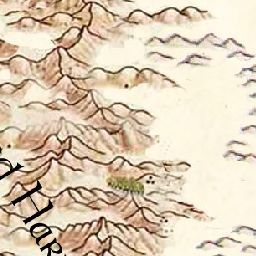 d Har